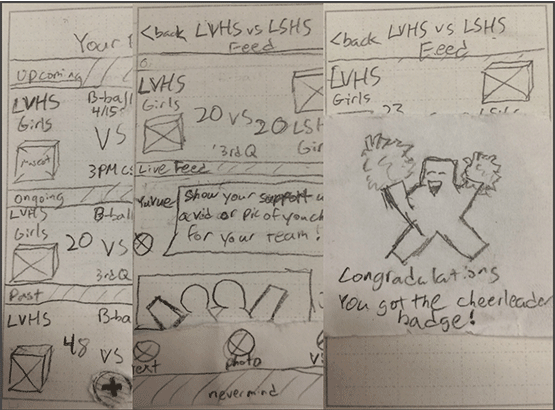 Your
Upcoming
LVHS
Girls
B-ball
4/15
VS
mascot
3PM
ongoing
LVHS
Girls
B-ball
20 VS
3rd Q
Past
LVHS
B-ba
48 VS
+
<back LVHS vs LSHS
Feed
LVHS
Girls
20 VS 20
LSH
Gir
3rd Q
Live Feed
Show your support
a vid or pic of you ch
for your team!
ext
photo
vi
nevermind
<back LVHS vs LSHS
Feed
LVHS
Girls
Congradulations
You got the cheerleader
badge!